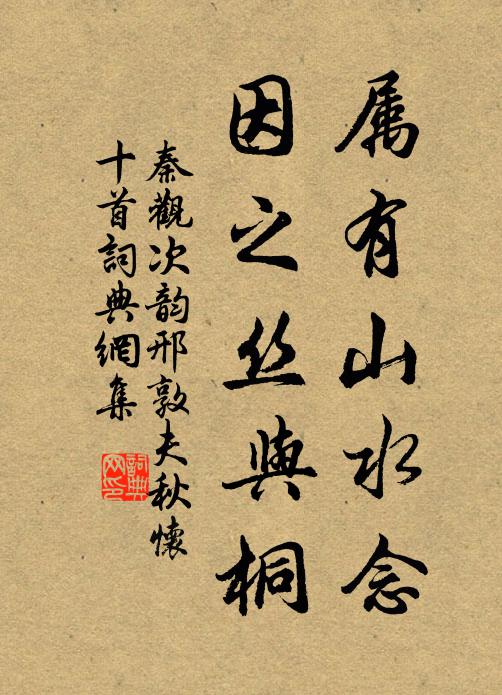 属有山水念
因之丝與桐
秦觀次韵邢敦夫秋懷
十首詞典網集
詞典网印